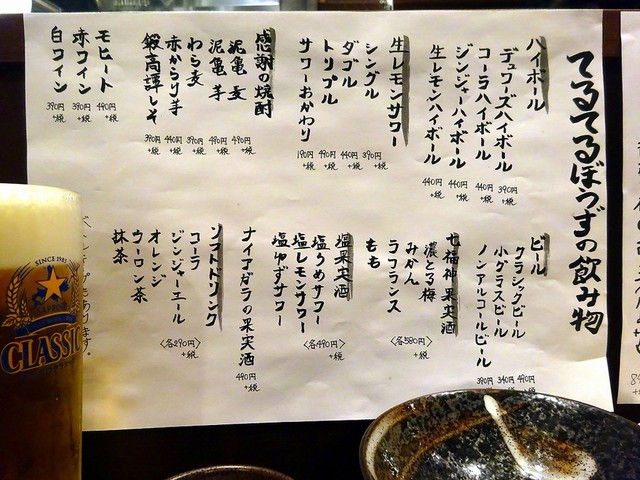 てるてるぼうずの飲み物
ハイボール
デュワーズハイボール 390円+税
コーラハイボール 440円+税
ジンジャーハイボール 440円+税
生レモンハイボール 440円+税
生レモンサワー
シングル 390円+税
ダブル 440円+税
トリプル 490円+税
サワーおかわり 190円+税
感謝の焼酎
泥亀 麦 490円+税
泥亀 芋 490円+税
わら麦 390円+税
赤からり芋 490円+税
鍛高譚しそ 390円+税
モヒート 390円+税
赤ワイン 390円+税
白ワイン 390円+税
ビール
クラシックビール 490円+税
小グラスビール 340円+税
ノンアルコールビール 390円+税
七福神果実酒
濃とろ梅
みかん
ラフランス
もも
〈各580円〉+税
塩果実酒
塩うめサワー
塩レモンサワー
塩ゆずサワー
〈各490円〉+税
ナイアガラの果実酒 490円+税
ソフトドリンク
コーラ
ジンジャーエール
オレンジ
ウーロン茶
抹茶
〈各290円〉+税
SINCE 1985
CLASSIC